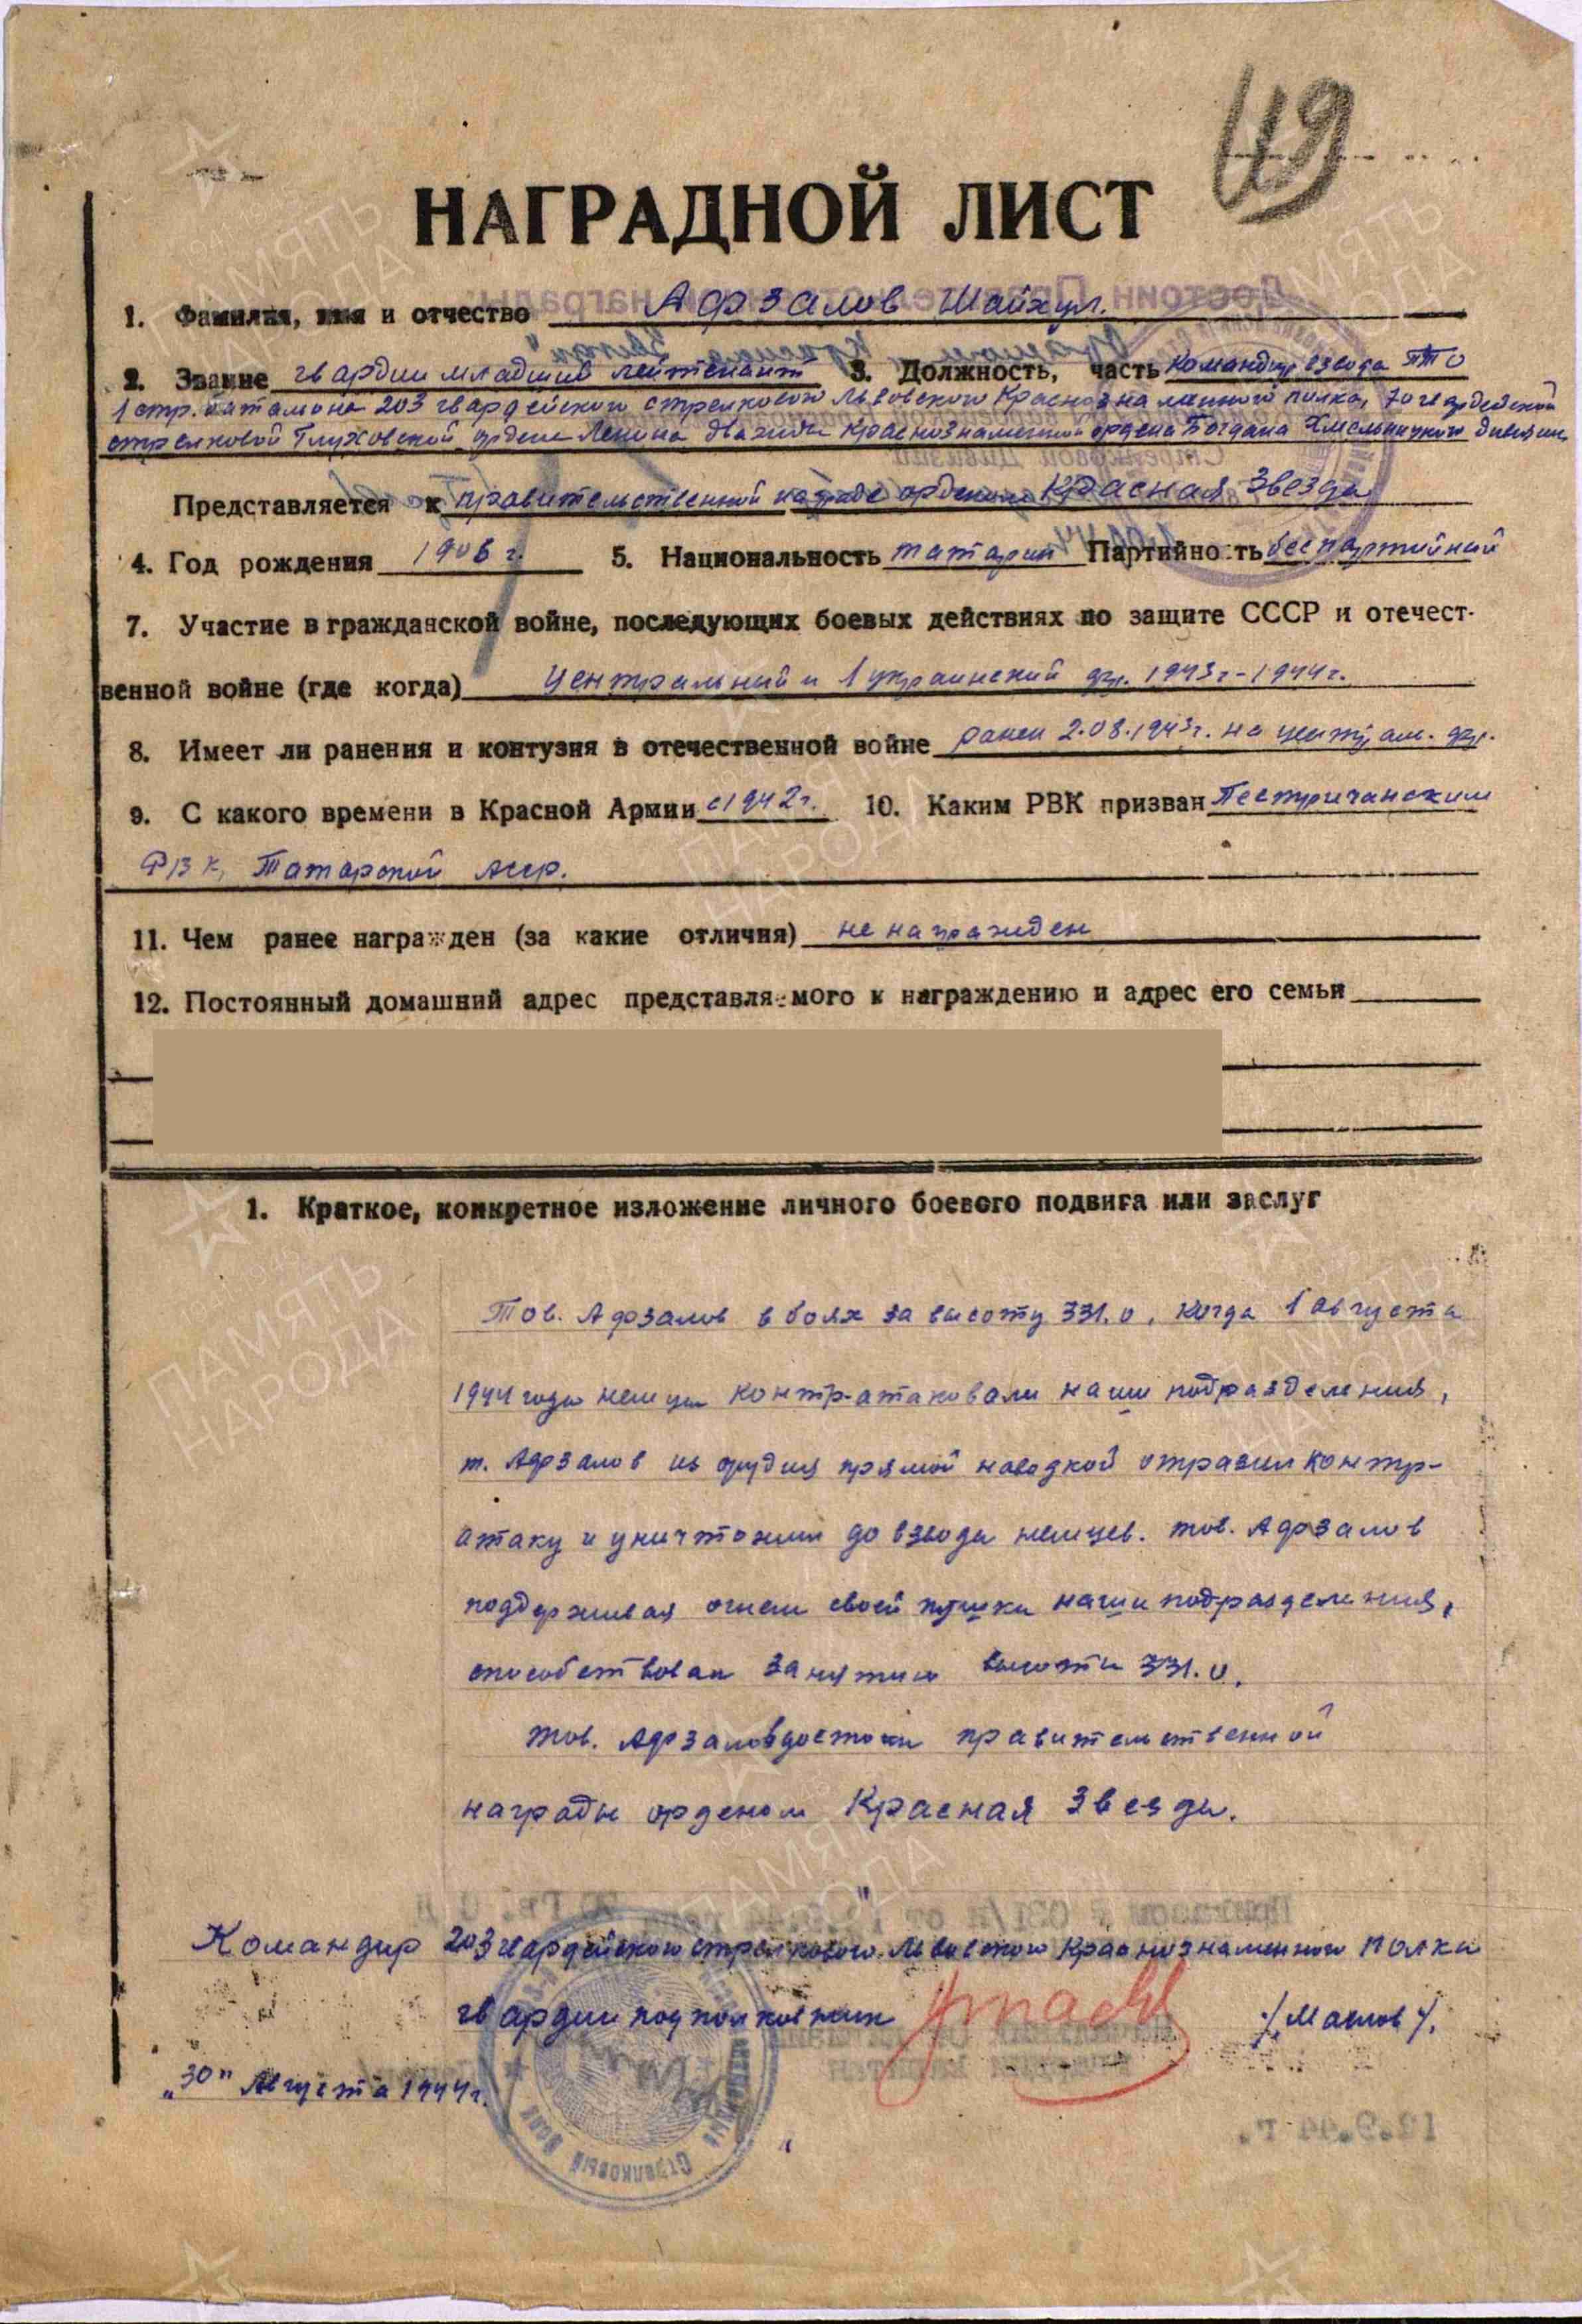 119
НАГРАДНОЙ ЛИСТ
1. Фамилия, имя и отчество Афзалов Шайхул.
2. Звание гвардии младший лейтенант 3. Должность, часть командир взвода ПТО
1 стр. батальона 203 гвардейского стрелкового Львовского Краснознаменного полка, 70 гвардейской
стрелковой Глуховской ордена Ленина дважды краснознаменной ордена Богдана Хмельницкого дивизии
Представляется к правительственной награде орденом Красная Звезда
4. Год рождения 1906 г. 5. Национальность татарин Партийность беспартийный
7. Участие в гражданской войне, последующих боевых действиях по защите СССР и отечест-
венной войне (где когда) Центральный и 1 украинский фр. 1943г-1944г.
8. Имеет ли ранения и контузия в отечественной войне ранен 2.08.1943г. на централ. фр.
9. С какого времени в Красной Армии с 1942г. 10. Каким РВК призван Пестричанским
РВК, Татарской АССР.
11. Чем ранее награжден (за какие отличия) не награжден
12. Постоянный домашний адрес представляемого к награждению и адрес его семьи
1. Краткое, конкретное изложение личного боевого подвига или заслуг
Тов. Афзалов в боях за высоту 331.0, когда 1 августа
1944 года немцы контр-атаковали наши подразделения,
т. Афзалов из орудия прямой наводкой отразил контр-
атаку и уничтожил до взвода немцев. тов. Афзалов
поддерживая огнем своей пушки наши подразделения,
способствовал занятию высоты 331.0.
тов. Афзалов достоин правительственной
награды орденом Красная Звезда.
Командир 203 гвардейского стрелкового Львовского Краснознаменного полка
гвардии подполковник /Маслов/.
"30" Августа 1944г.
Стрелковый полк
12.9.44 г.
ПАМЯТЬ НАРОДА